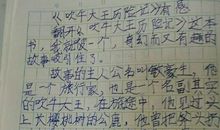 《吹牛大王历险记》有感
翻开《吹牛大王历险记》这本
书,我就被一个、奇幻而又有趣的
故事吸引住了。
故事的主人公名叫敏豪生,他
是一个旅行家,也是一个名副其实
的吹牛大王,在旅途中,他见过头
上长樱桃树的公鹿,他曾把